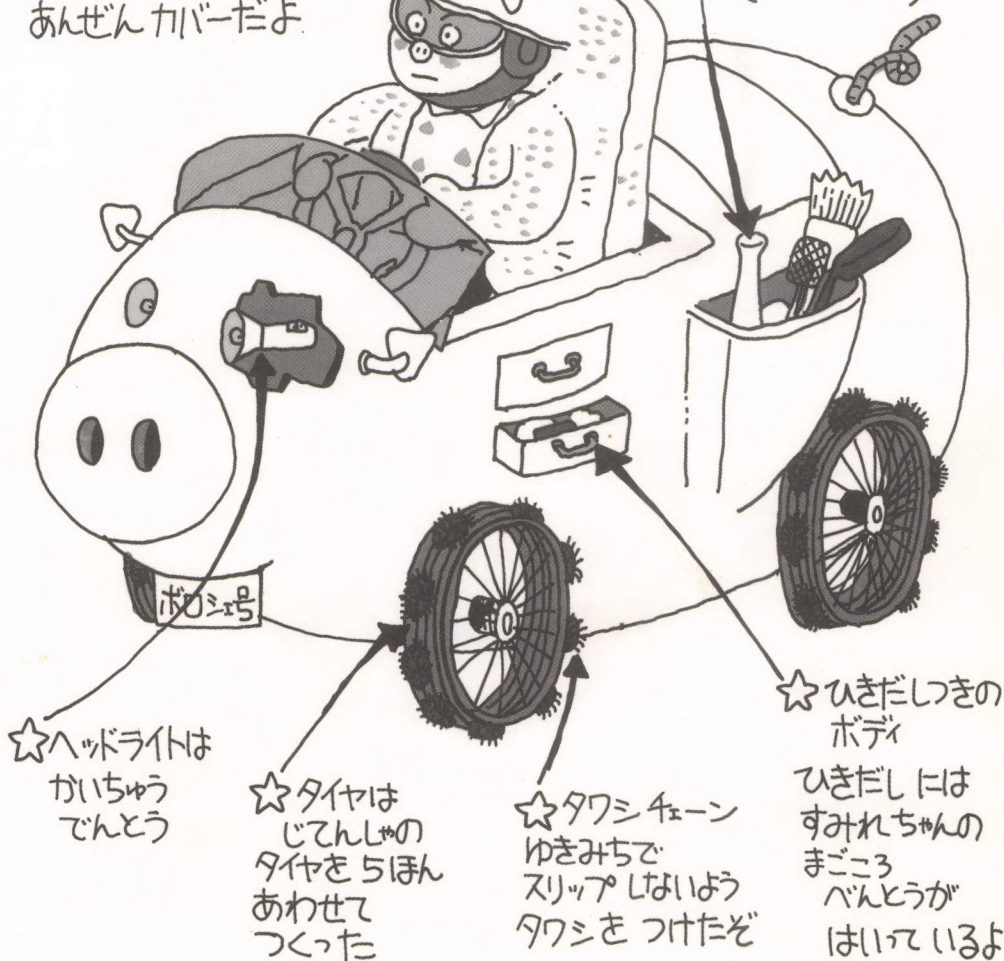 あんぜんカバーだよ
ボロシェ号
☆ヘッドライトは
かいちゅう
でんとう
☆タイヤは
じてんしゃの
タイヤを5ほん
あわせて
つくった
☆タワシチェーン
ゆきみちで
スリップしないよう
タワシをつけたぞ
☆ひきだしつきの
ボディ
ひきだしには
すみれちゃんの
まごころ
べんとうが
はいっているよ